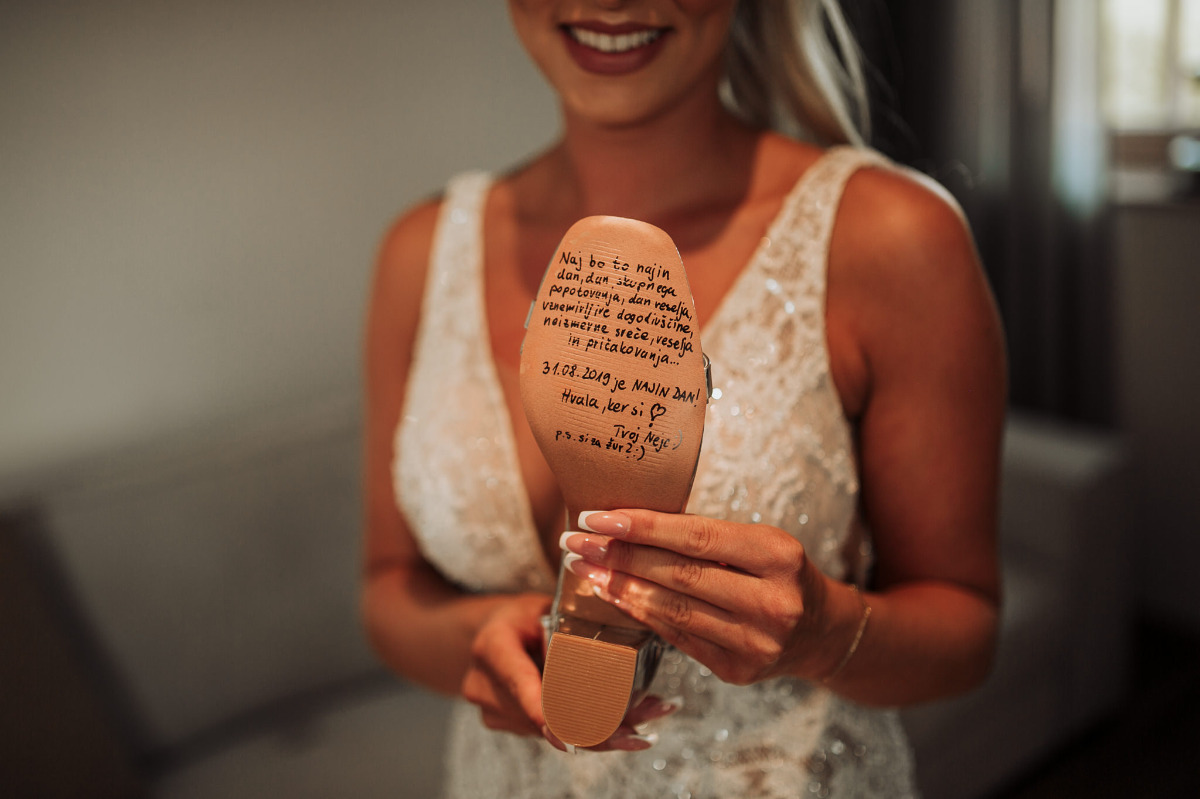 Naj bo to najin
dan, dan skupnega
popotovanja, dan veselja,
vznemirljive dogodivščine,
neizmerne sreče, veselja
in pričakovanja...
31.08.2019 je NAJIN DAN!
Hvala, ker si ♡
Tvoj Nejc :)
p.s. si za žur? :)